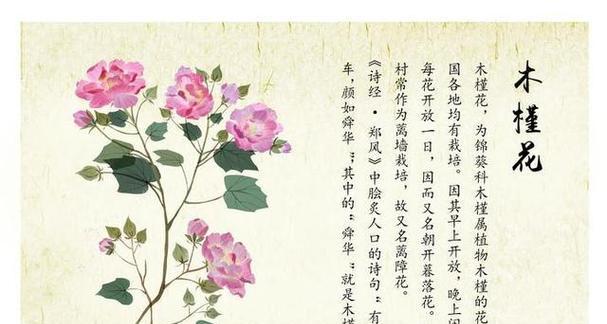 木槿花
木槿花，为锦葵科木槿属植物木槿的花
国各地均有栽培。因其早上开放，晚上闭
每花开放一日，因而又名朝开暮落花。
村常作为篱墙栽培，故又名篱障花。
《诗经·郑风》中脍炙人口的诗句：“有
车，颜如舜华”，其中的“舜华”就是木槿